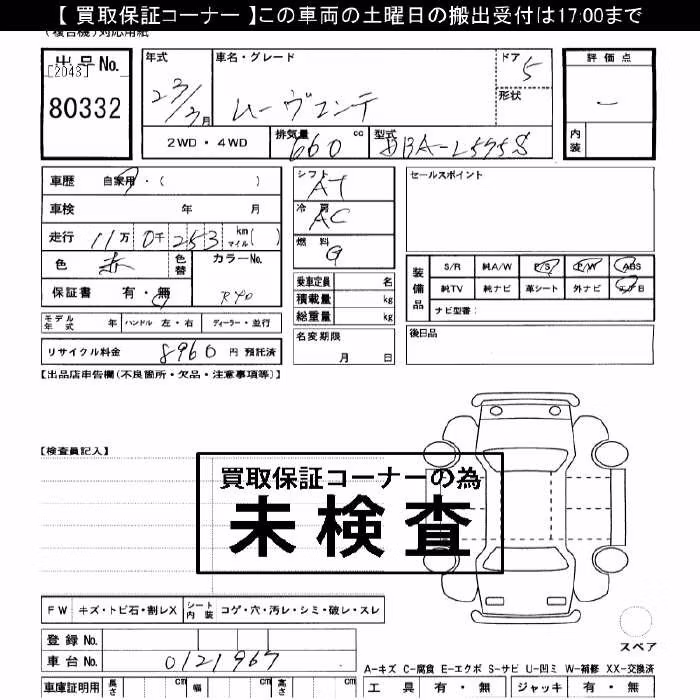 【 買取保証コーナー 】この車両の土曜日の搬出受付は17:00まで
(複合機)対応用紙
出品No.
[2043]
80332
年式
23/3月
車名・グレード
ムーヴコンテ
ドア
5
形状
評価点
内装
2WD・4WD
排気量
660
cc
型式
DBA-L575S
車歴 自家用・( )
車検 年 月
走行 11万 0千 253 km マイル( )
色 赤 色替 カラーNo.
保証書 有・無 R40
モデル年式 年 ハンドル 左・右 ディーラー・並行
リサイクル料金 8960 円 預託済
シフト
AT
冷房
AC
燃料
G
乗車定員 名
積載量 kg
総重量 kg
名変期限
月 日
セールスポイント
装備品
S/R 純A/W P/S P/W ABS
純TV 純ナビ 革シート 外ナビ エアB
ナビ型番:
後日品
【出品店申告欄(不良箇所・欠品・注意事項等)】
【検査員記入】
買取保証コーナーの為
未検査
FW キズ・トビ石・割レX シート内装 コゲ・穴・汚レ・シミ・破レ・スレ
登録No.
車台No. 0121967
車庫証明用 長さ cm 幅 cm 高さ cm
スペア
A-キズ C-腐食 E-エクボ S-サビ U-凹ミ W-補修 XX-交換済
工具 有・無 ジャッキ 有・無